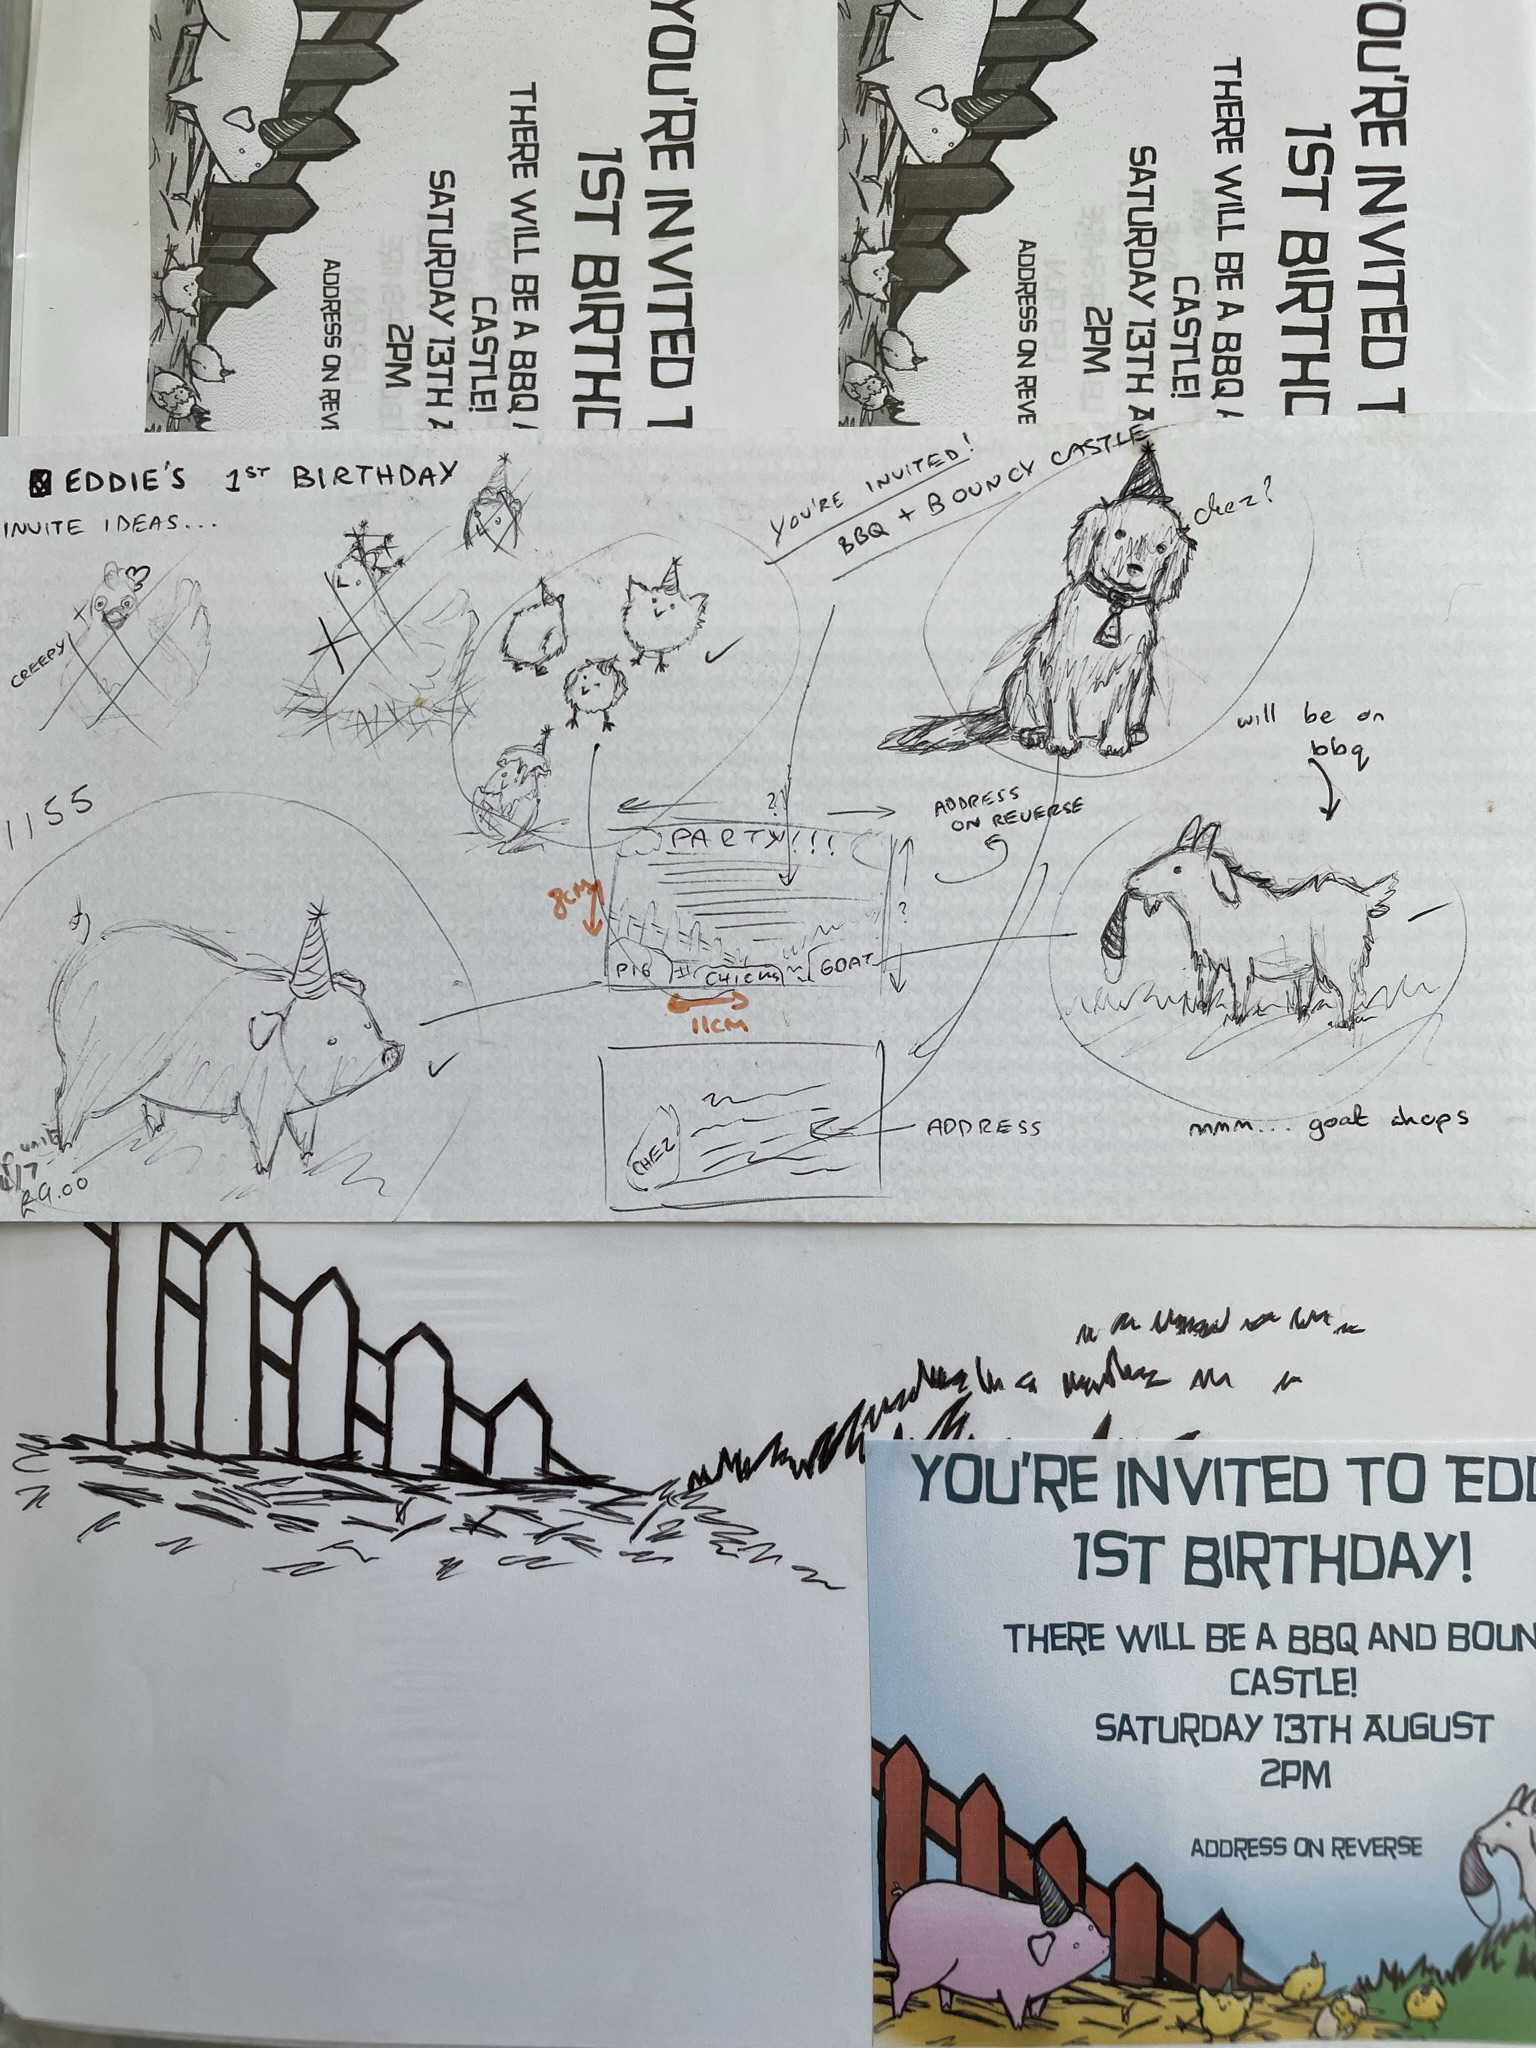 YOU'RE INVITED T
1ST BIRTHD
THERE WILL BE A BBQ A
CASTLE!
SATURDAY 13TH A
2PM
ADDRESS ON REVE
YOU'RE INVITED T
1ST BIRTHD
THERE WILL BE A BBQ A
CASTLE!
SATURDAY 13TH A
2PM
ADDRESS ON REVE
EDDIE'S 1ST BIRTHDAY
INVITE IDEAS...
YOU'RE INVITED!
BBQ + BOUNCY CASTLE
chez?
CREEPY
will be on
bbq
1155
?
ADDRESS
ON REVERSE
PARTY!!!
8CM
?
PIG
CHICKS
GOAT
11CM
CHEZ
ADDRESS
mmm... goat chops
£9.00
YOU'RE INVITED TO EDD
1ST BIRTHDAY!
THERE WILL BE A BBQ AND BOUN
CASTLE!
SATURDAY 13TH AUGUST
2PM
ADDRESS ON REVERSE